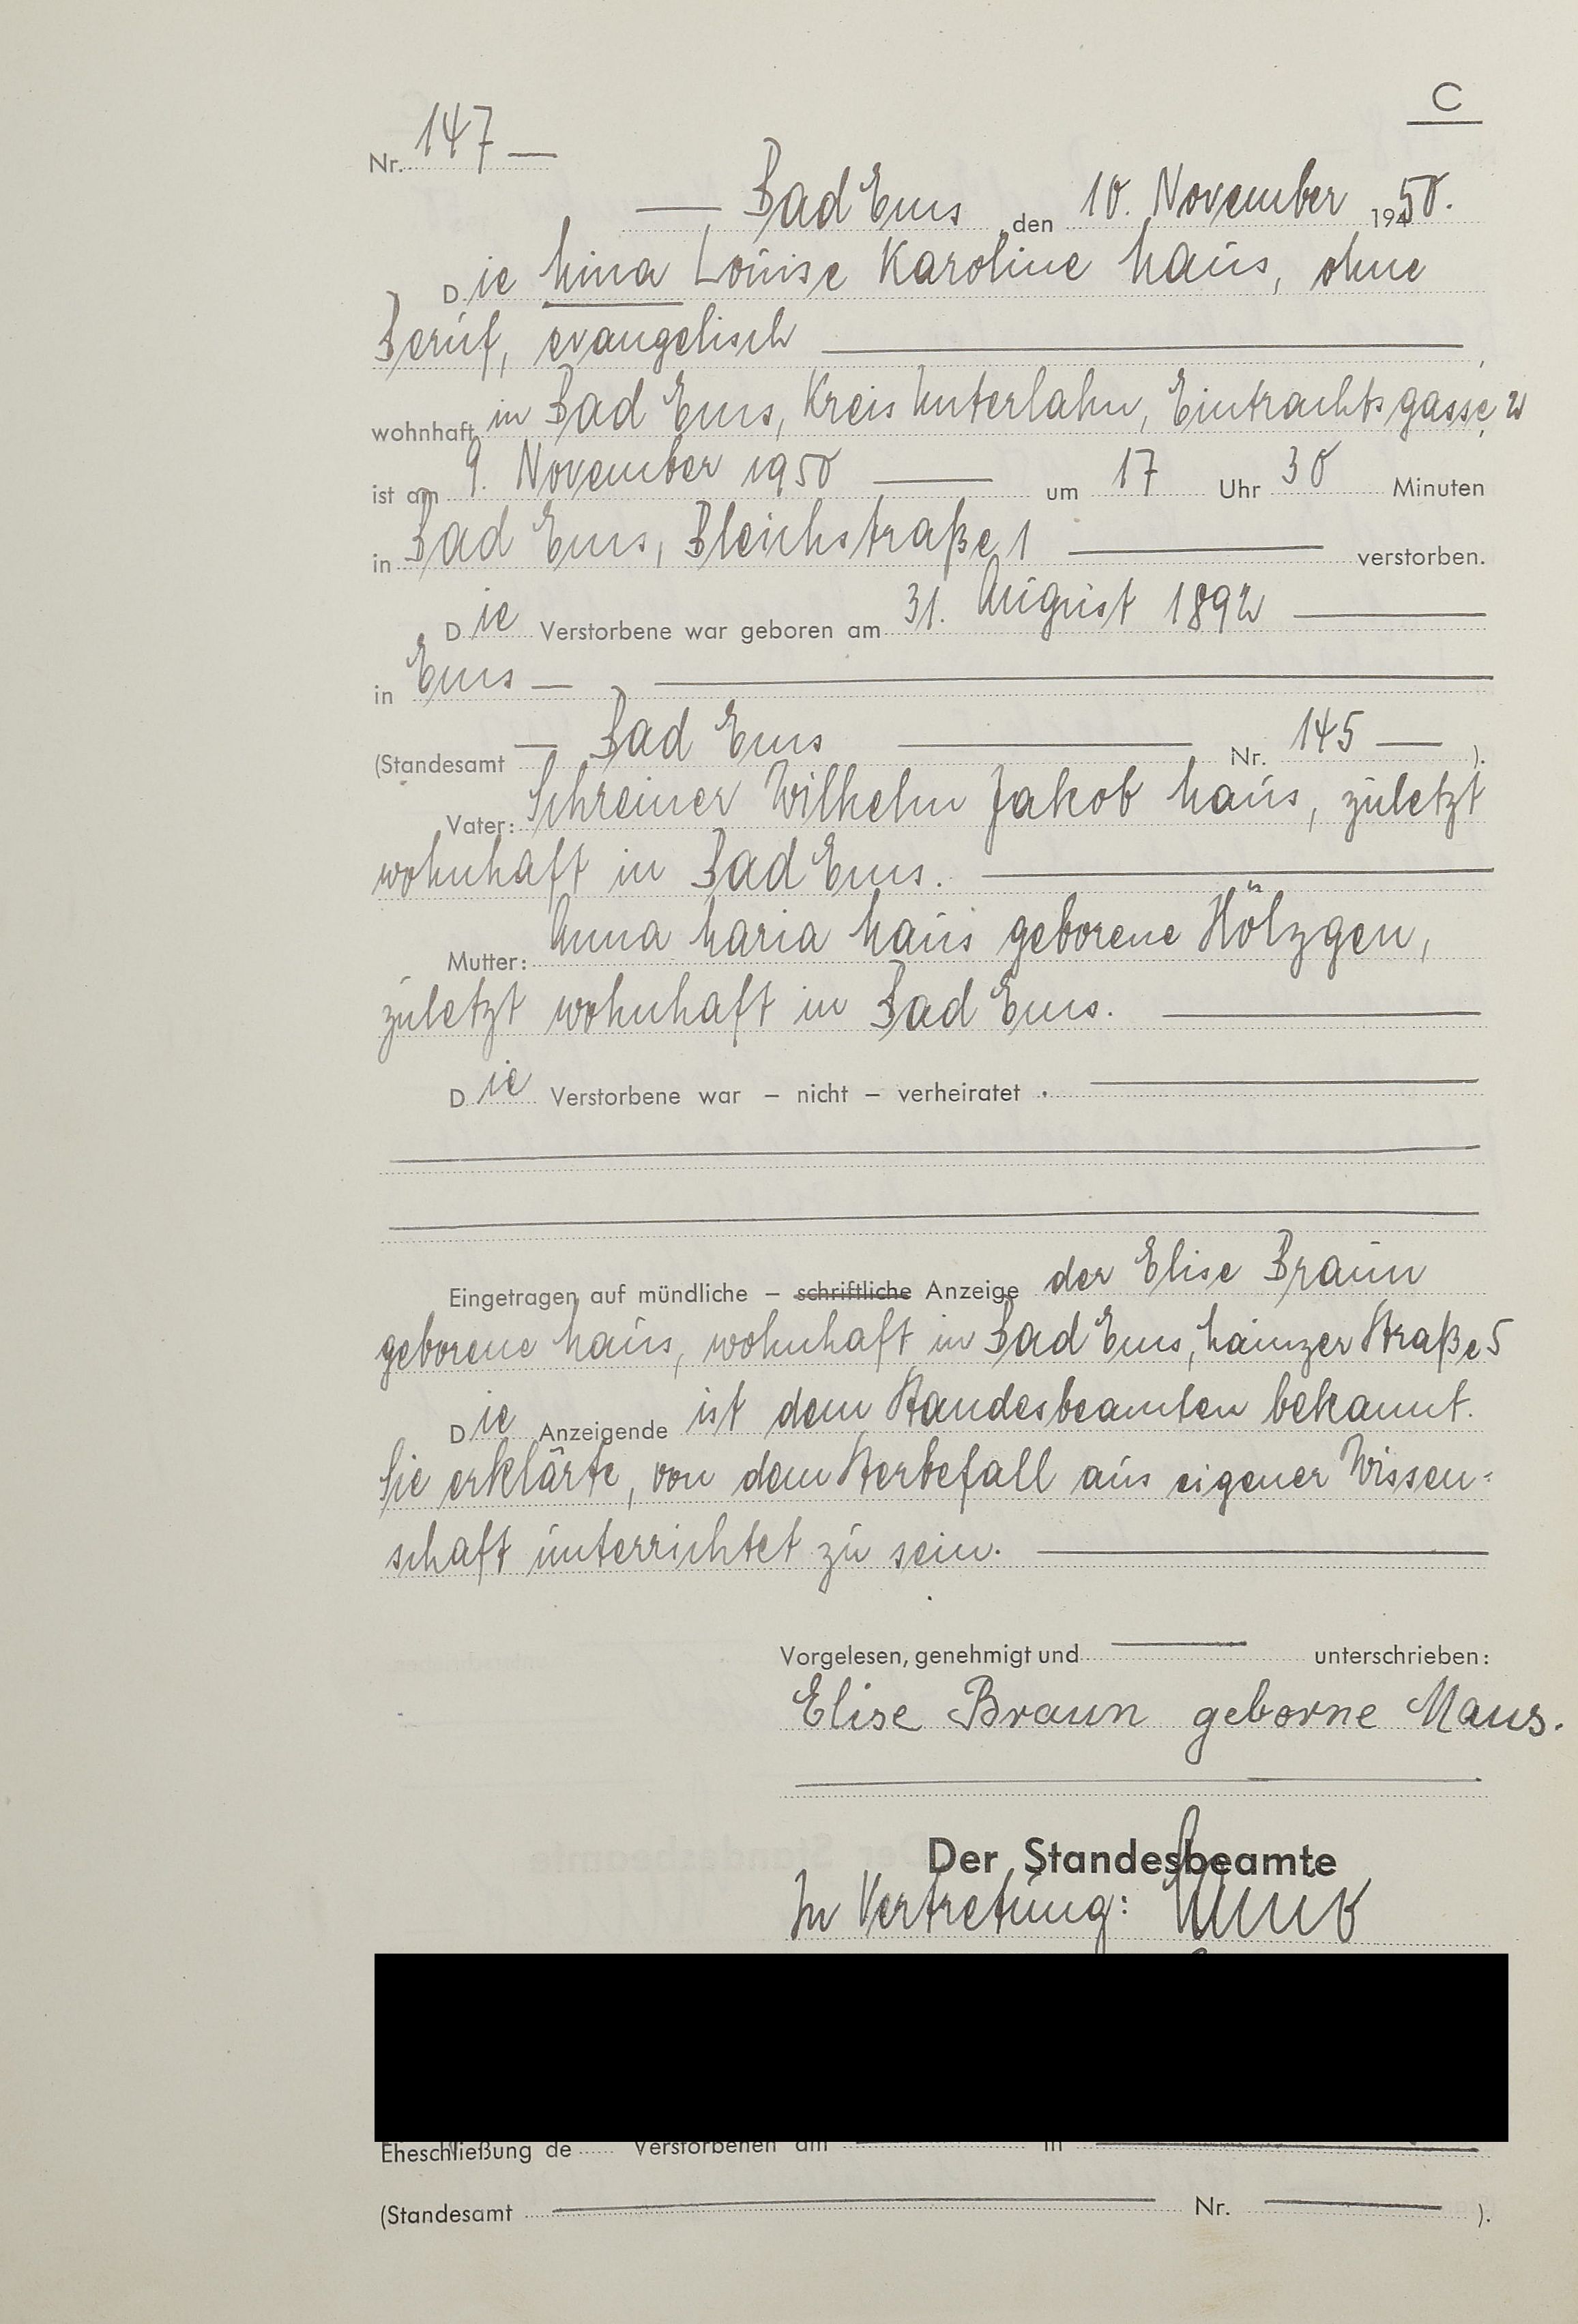 C
Nr. 147 —
— Bad Ems, den 10. November 1950.
Die Mina Louise Karoline Maus, ohne
Beruf, evangelisch ,
wohnhaft in Bad Ems, Kreis Unterlahn, Eintrachtsgasse 2
ist am 9. November 1950 — um 17 Uhr 30 Minuten
in Bad Ems, Bleichstraße 1 — verstorben.
Die Verstorbene war geboren am 31. August 1892 —
in Ems —
(Standesamt — Bad Ems — Nr. 145 — ).
Vater: Schreiner Wilhelm Jakob Maus, zuletzt
wohnhaft in Bad Ems. —
Mutter: Anna Maria Maus geborene Hölzgen,
zuletzt wohnhaft in Bad Ems. —
Die Verstorbene war – nicht – verheiratet . —
Eingetragen auf mündliche – schriftliche Anzeige der Elise Braun
geborene Maus, wohnhaft in Bad Ems, Mainzer Straße 5
Die Anzeigende ist dem Standesbeamten bekannt.
Sie erklärte, von dem Sterbefall aus eigener Wissen-
schaft unterrichtet zu sein. —
Vorgelesen, genehmigt und — unterschrieben:
Elise Braun geborne Maus.
Der Standesbeamte
In Vertretung:
Eheschließung de Verstorbenen am — in —
(Standesamt — Nr. — ).